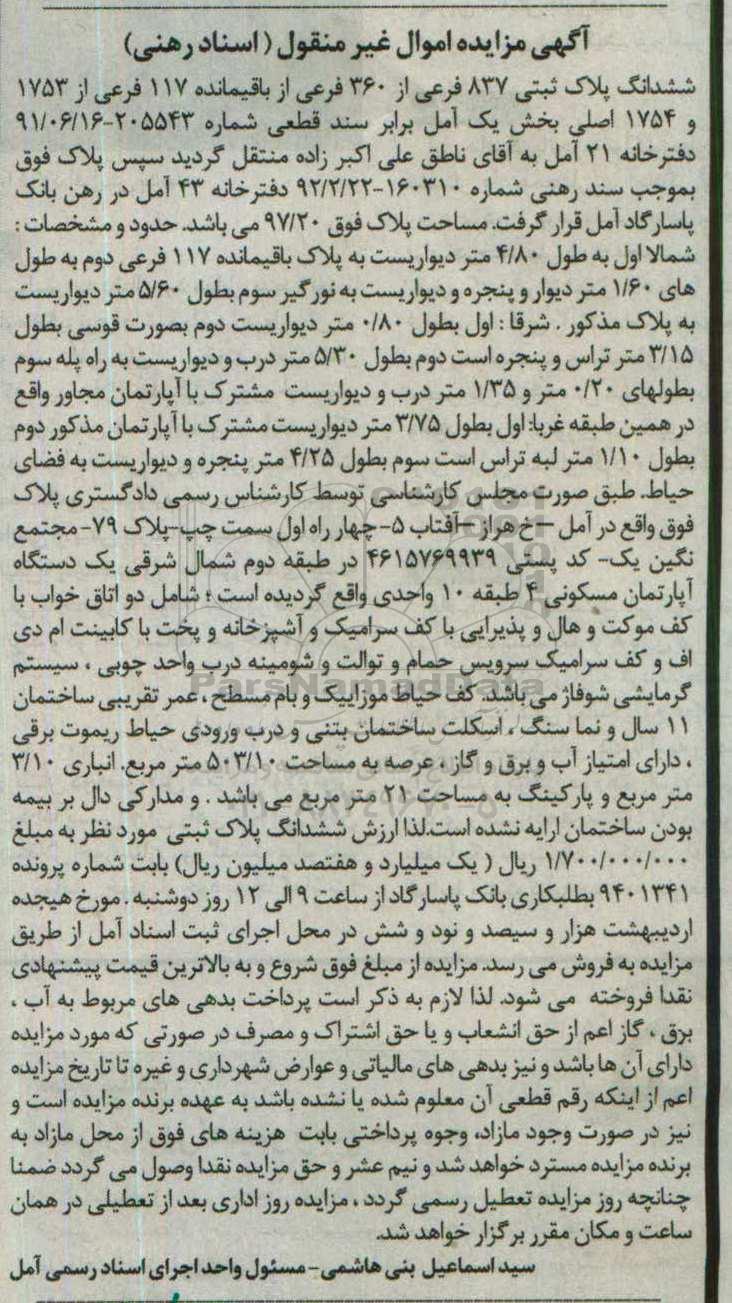 آگهی مزایده اموال غیر منقول (اسناد رهنی)
ششدانگ پلاک ثبتی ۸۳۷ فرعی از ۳۶۰ فرعی از باقیمانده ۱۱۷ فرعی از ۱۷۵۳
و ۱۷۵۴ اصلی بخش یک آمل برابر سند قطعی شماره ۲۰۵۵۴۳-۹۱/۰۶/۱۶
دفترخانه ۲۱ آمل به آقای ناطق علی اکبر زاده منتقل گردید سپس پلاک فوق
بموجب سند رهنی شماره ۱۶۰۳۱۰-۹۲/۲/۲۲ دفترخانه ۴۳ آمل در رهن بانک
پاسارگاد آمل قرار گرفت. مساحت پلاک فوق ۹۷/۲۰ می باشد. حدود و مشخصات :
شمالا اول به طول ۴/۸۰ متر دیواریست به پلاک باقیمانده ۱۱۷ فرعی دوم به طول
های ۱/۶۰ متر دیوار و پنجره و دیواریست به نورگیر سوم بطول ۵/۶۰ متر دیواریست
به پلاک مذکور . شرقا : اول بطول ۰/۸۰ متر دیواریست دوم بصورت قوسی بطول
۳/۱۵ متر تراس و پنجره است دوم بطول ۵/۳۰ متر درب و دیواریست به راه پله سوم
بطولهای ۰/۲۰ متر و ۱/۳۵ متر درب و دیواریست مشترک با آپارتمان مجاور واقع
در همین طبقه غربا: اول بطول ۳/۷۵ متر دیواریست مشترک با آپارتمان مذکور دوم
بطول ۱/۱۰ متر لبه تراس است سوم بطول ۴/۲۵ متر پنجره و دیواریست به فضای
حیاط. طبق صورت مجلس کارشناسی توسط کارشناس رسمی دادگستری پلاک
فوق واقع در آمل –خ هراز –آفتاب ۵- چهار راه اول سمت چپ-پلاک ۷۹- مجتمع
نگین یک- کد پستی ۴۶۱۵۷۶۹۹۳۹ در طبقه دوم شمال شرقی یک دستگاه
آپارتمان مسکونی ۴ طبقه ۱۰ واحدی واقع گردیده است ؛ شامل دو اتاق خواب با
کف موکت و هال و پذیرایی با کف سرامیک و آشپزخانه و پخت با کابینت ام دی
اف و کف سرامیک سرویس حمام و توالت و شومینه درب واحد چوبی ، سیستم
گرمایشی شوفاژ می باشد. کف حیاط موزاییک و بام مسطح ، عمر تقریبی ساختمان
۱۱ سال و نما سنگ ، اسکلت ساختمان بتنی و درب ورودی حیاط ریموت برقی
، دارای امتیاز آب و برق و گاز ، عرصه به مساحت ۵۰۳/۱۰ متر مربع. انباری ۳/۱۰
متر مربع و پارکینگ به مساحت ۲۱ متر مربع می باشد . و مدارکی دال بر بیمه
بودن ساختمان ارایه نشده است.لذا ارزش ششدانگ پلاک ثبتی مورد نظر به مبلغ
۱/۷۰۰/۰۰۰/۰۰۰ ریال ( یک میلیارد و هفتصد میلیون ریال) بابت شماره پرونده
۹۴۰۱۳۴۱ بطلبکاری بانک پاسارگاد از ساعت ۹ الی ۱۲ روز دوشنبه . مورخ هیجده
اردیبهشت هزار و سیصد و نود و شش در محل اجرای ثبت اسناد آمل از طریق
مزایده به فروش می رسد. مزایده از مبلغ فوق شروع و به بالاترین قیمت پیشنهادی
نقدا فروخته می شود. لذا لازم به ذکر است پرداخت بدهی های مربوط به آب ،
برق ، گاز اعم از حق انشعاب و یا حق اشتراک و مصرف در صورتی که مورد مزایده
دارای آن ها باشد و نیز بدهی های مالیاتی و عوارض شهرداری و غیره تا تاریخ مزایده
اعم از اینکه رقم قطعی آن معلوم شده یا نشده باشد به عهده برنده مزایده است و
نیز در صورت وجود مازاد، وجوه پرداختی بابت هزینه های فوق از محل مازاد به
برنده مزایده مسترد خواهد شد و نیم عشر و حق مزایده نقدا وصول می گردد ضمنا
چنانچه روز مزایده تعطیل رسمی گردد ، مزایده روز اداری بعد از تعطیلی در همان
ساعت و مکان مقرر برگزار خواهد شد.
سید اسماعیل بنی هاشمی - مسئول واحد اجرای اسناد رسمی آمل
ParsNamadData